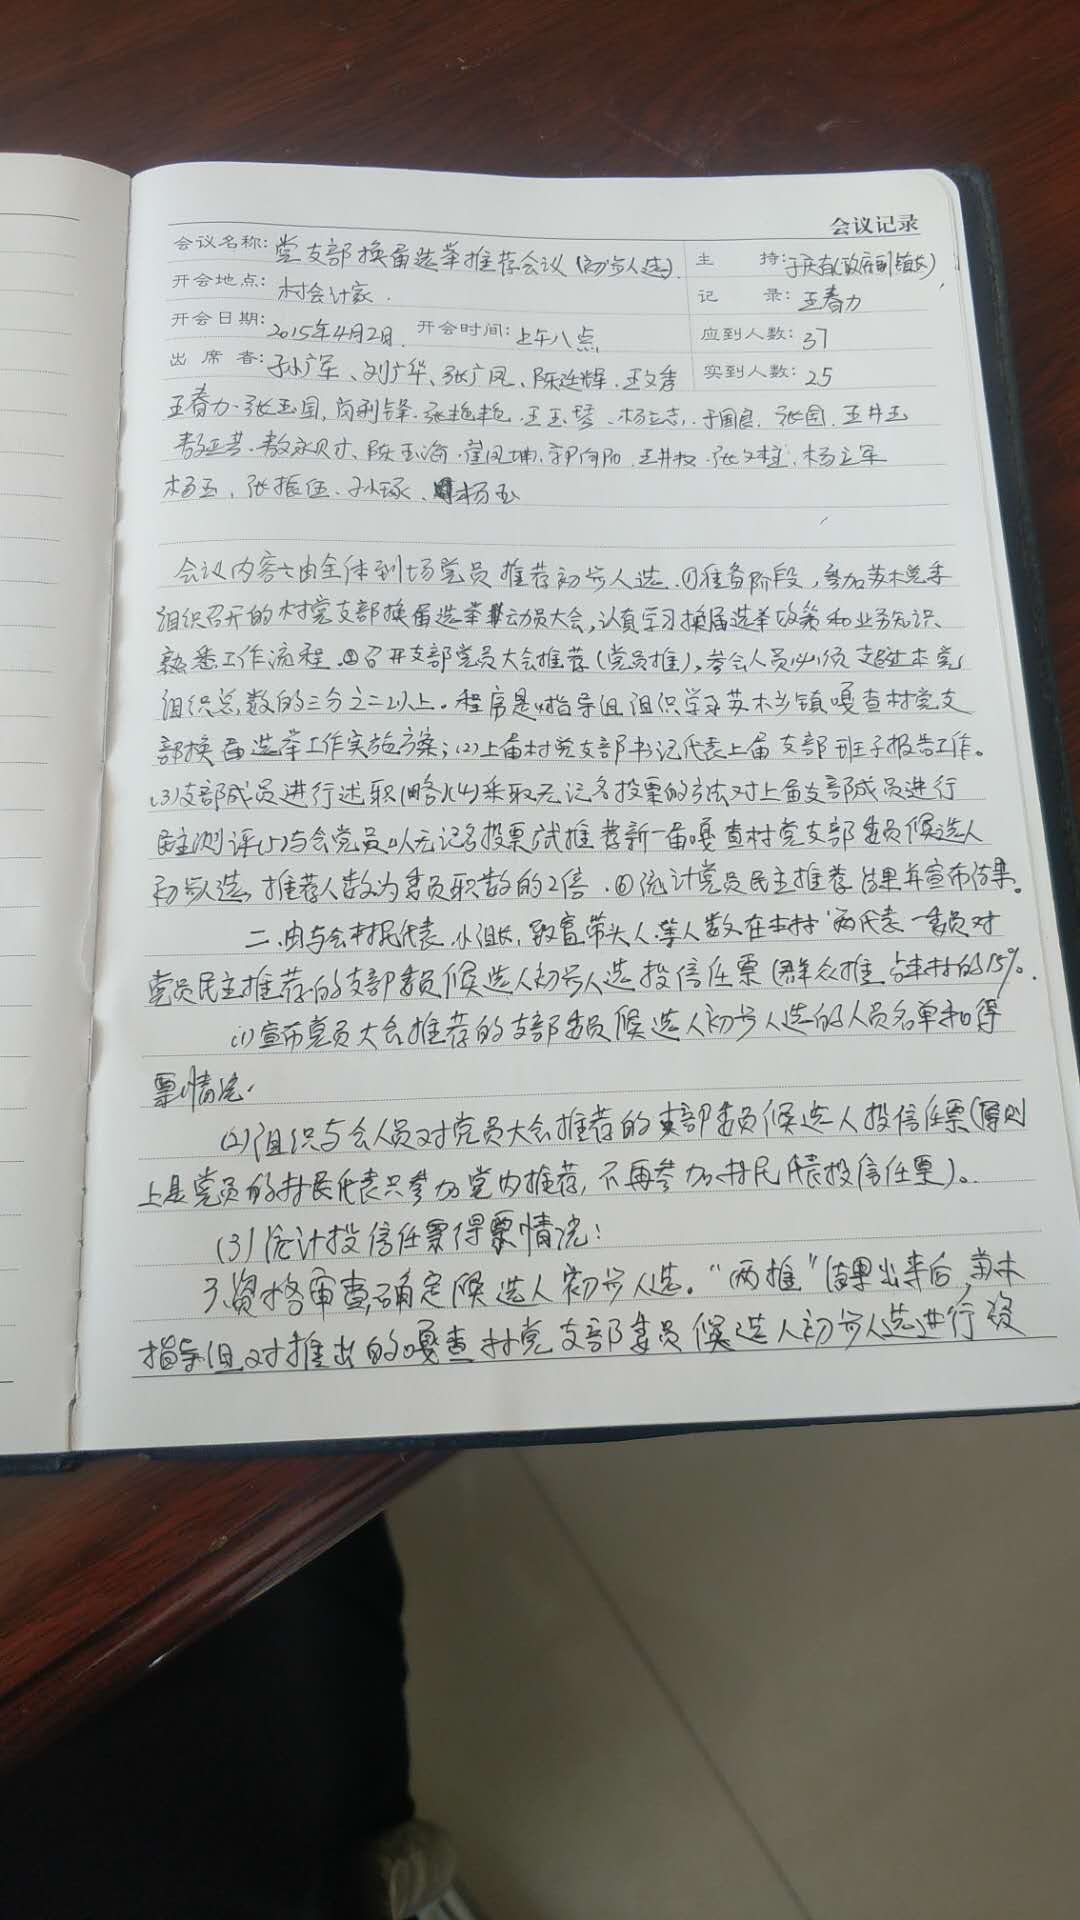 会议记录
会议名称: 党支部换届选举推荐会议(初步人选) 主 持: 于庆有(政府副镇长)
开会地点: 村会计家. 记 录: 王春力
开会日期: 2015年4月2日. 开会时间: 上午八点 应到人数: 37
出 席 者: 孙广军、刘广华、张广凤、陈连辉、王文秀 实到人数: 25
王春力、张玉国、尚利锋、张艳艳、王玉琴、杨立志、于国良、张国、王井玉
敖正芳、敖永贝才、陈玉海、崔凤坤、郭向阳、王井权、张文柱、杨立军
杨玉、张振伍、孙琢、杨玉
会议内容:一由全体到场党员推荐初步人选.①准备阶段,参加苏木党委
组织召开的村党支部换届选举动员大会,认真学习换届选举政策和业务知识
熟悉工作流程.②召开支部党员大会推荐(党员推),参会人员必须超过本党
组织总数的三分之二以上。程序是:指导组组织学习苏木乡镇嘎查村党支
部换届选举工作实施方案;(2)上届村党支部书记代表上届支部班子报告工作。
(3)支部成员进行述职(略)(4)采取无记名投票的方法对上届支部成员进行
民主测评(5)与会党员以无记名投票式推荐新一届嘎查村党支部委员候选人
初步人选,推荐人数为委员职数的2倍.⑥统计党员民主推荐结果并宣布结果。
二、由与会村民代表、小组长、致富带头人等人数在本村“两代表一委员对
党员民主推荐的支部委员候选人初步人选投信任票(群众推占本村的15%.
(1)宣布党员大会推荐的支部委员候选人初步人选的人员名单和得
票情况.
(2)组织与会人员对党员大会推荐的支部委员候选人投信任票(原则
上是党员的村民代表只参加党内推荐,不再参加村民代表投信任票)。
(3)统计投信任票得票情况:
3、资格审查,确定候选人初步人选。“两推”结果出来后,苏木
指导组对推出的嘎查村党支部委员候选人初步人选进行资